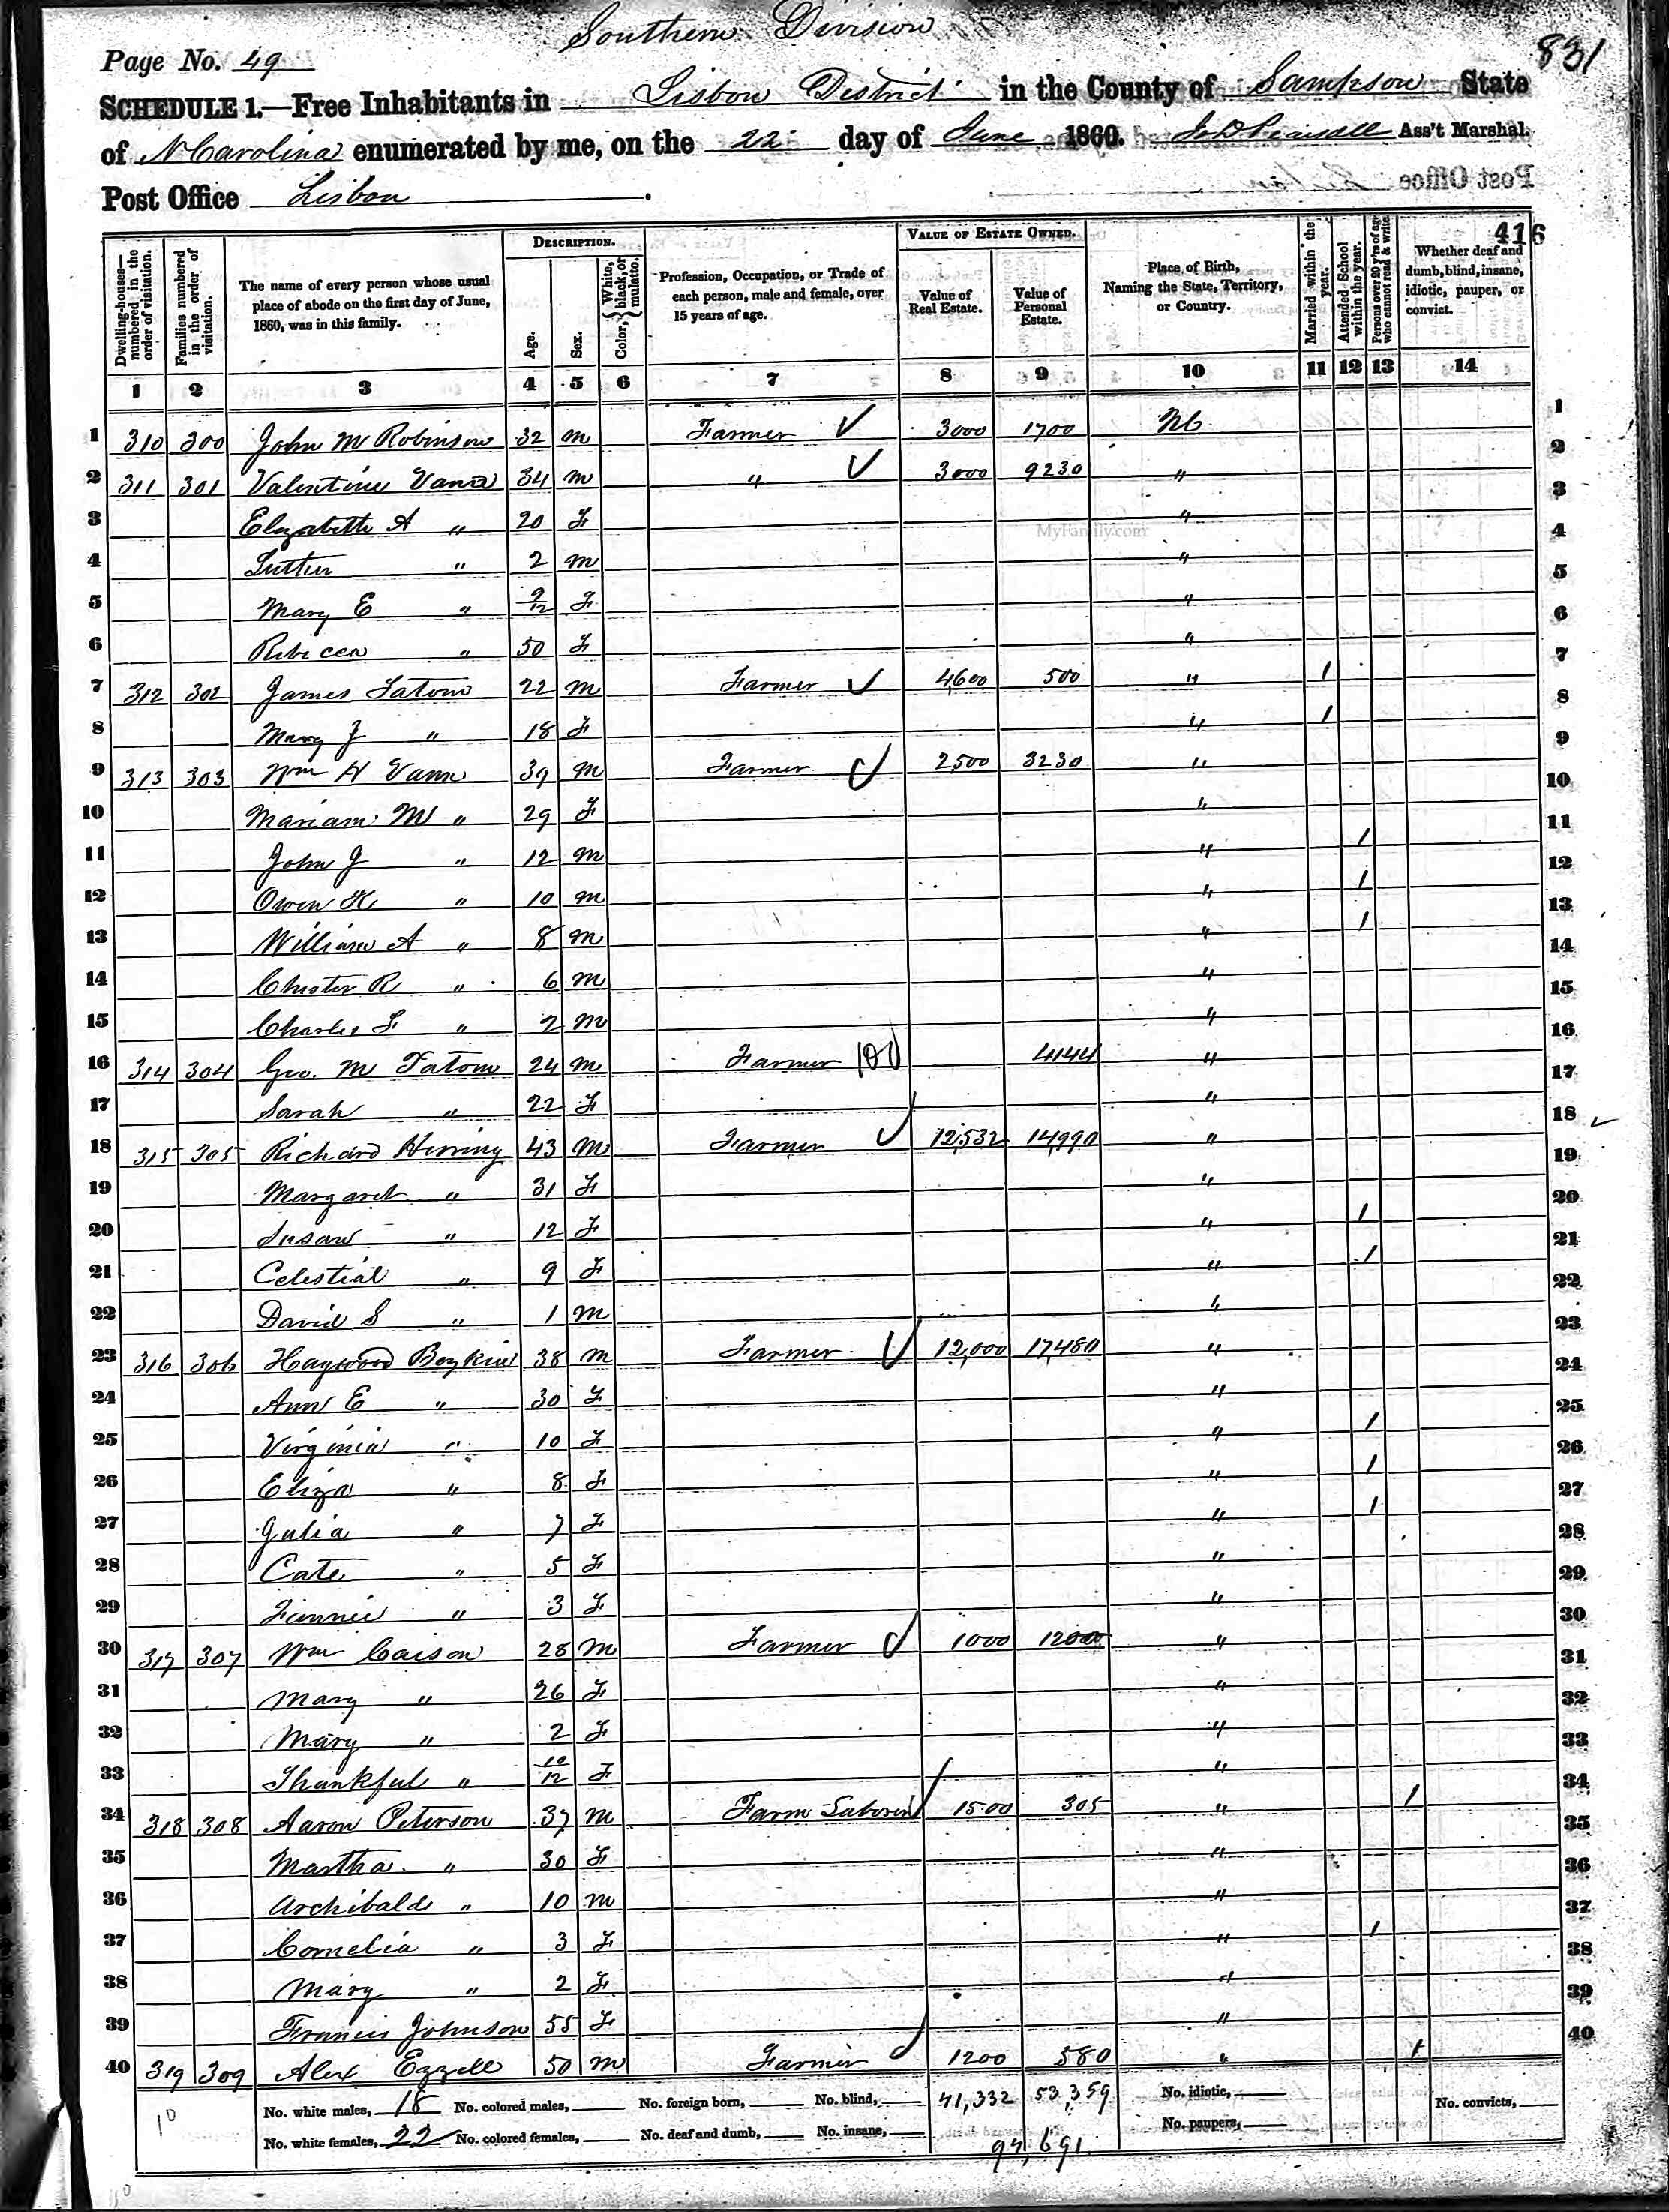 Southern Division
Page No. 49
831
SCHEDULE 1.—Free Inhabitants in Lisbon District in the County of Sampson State
of N Carolina enumerated by me, on the 22 day of June 1860. Ass't Marshal.
Post Office Lisbon.
Post Office
416
Dwelling-houses—numbered in the order of visitation.
Families numbered in the order of visitation.
The name of every person whose usual place of abode on the first day of June, 1860, was in this family.
DESCRIPTION.
Age.
Sex.
Color, { White, black, or mulatto.
Profession, Occupation, or Trade of each person, male and female, over 15 years of age.
VALUE OF ESTATE OWNED.
Value of Real Estate.
Value of Personal Estate.
Place of Birth, Naming the State, Territory, or Country.
Married within the year.
Attended School within the year.
Persons over 20 y'rs of age who cannot read & write.
Whether deaf and dumb, blind, insane, idiotic, pauper, or convict.
1 2 3 4 5 6 7 8 9 10 11 12 13 14
1 310 300 John M Robinson 32 m Farmer ✓ 3000 1700 NC 1
2 311 301 Valentine Vann 34 m " ✓ 3000 9230 " 2
3 Elizabeth A " 20 F " 3
MyFamily.com
4 " 2 m " 4
5 Mary E " 9/12 F " 5
6 Rebecca " 50 F " 6
7 312 302 James Tatom 22 m Farmer ✓ 4600 500 " 1 7
8 Mary J " 18 F " 1 8
9 313 303 Wm H Vann 39 m Farmer ✓ 2500 3230 " 9
10 Mariam M " 29 F " 10
11 John J " 12 m " 1 11
12 Owen H " 10 m " 1 12
13 William A " 8 m " 1 13
14 Chester R " 6 m " 14
15 Charles F " 2 m " 15
16 314 304 Geo. M Tatom 24 m Farmer 4144 " 16
17 Sarah " 22 F " 17
18 315 305 Richard Herring 43 m Farmer ✓ 12,532 14,990 " 18
19 Margaret " 31 F " 19
20 Susan " 12 F " 1 20
21 Celestial " 9 F " 1 21
22 David S " 1 m " 22
23 316 306 Haywood Boykin 38 m Farmer ✓ 12,000 17,480 " 23
24 Ann E " 30 F " 24
25 Virginia " 10 F " 1 25
26 Eliza " 8 F " 1 26
27 Julia " 7 F " 1 27
28 Cate " 5 F " 28
29 Fannie " 3 F " 29
30 317 307 Wm Caison 28 m Farmer ✓ 1000 1200 " 30
31 Mary " 26 F " 31
32 Mary " 2 F " 32
33 Thankful " 10/12 F " 33
34 318 308 Aaron Peterson 37 m Farm Laborer ✓ 1500 305 " 1 34
35 Martha " 30 F " 35
36 Archibald " 10 m " 36
37 Cornelia " 3 F " 1 37
38 Mary " 2 F " 38
39 Francis Johnson 55 F " 39
40 319 309 Alex Ezzell 50 m Farmer ✓ 1200 580 " 1 40
10
No. white males, 18 No. colored males, No. foreign born, No. blind, 41,332 53,359 No. idiotic, No. convicts,
No. white females, 22 No. colored females, No. deaf and dumb, No. insane, No. paupers,
94,691